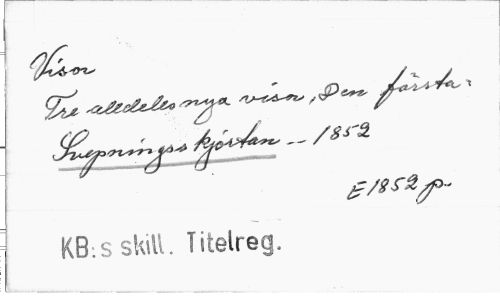 Visor
Tre alldeles nya visor, Den första:
Svepningsskjortan -- 1852
E1852 p.
KB:s skill. Titelreg.